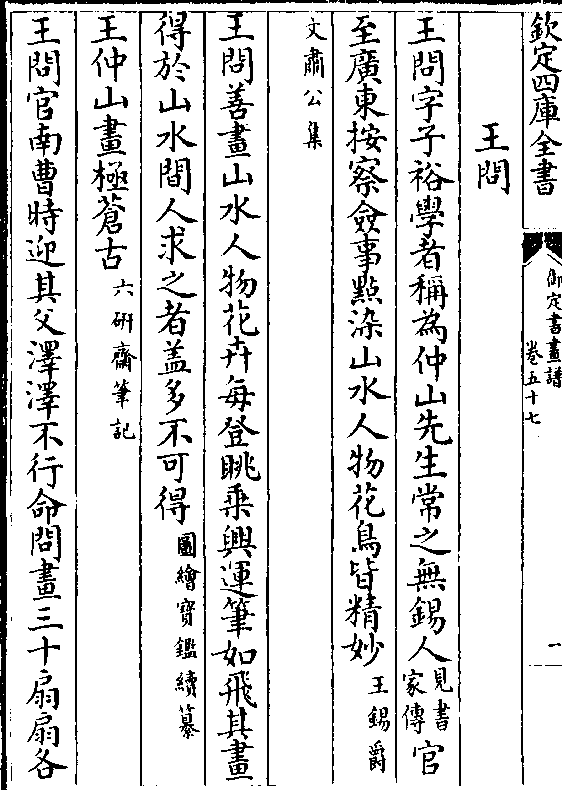 欽定四庫全書
御定書畫譜
卷五十七
一
王問
王問字子裕學者稱為仲山先生常之無錫人見書家傳官
至廣東按察僉事點染山水人物花鳥皆精妙王錫爵
文肅公集
王問善畫山水人物花卉每登眺乗興運筆如飛其畫
得於山水間人求之者盖多不可得圖繪寶鑑續纂
王仲山畫極蒼古六研齋筆記
王問官南曹時迎其父澤澤不行命問畫三十扇扇各